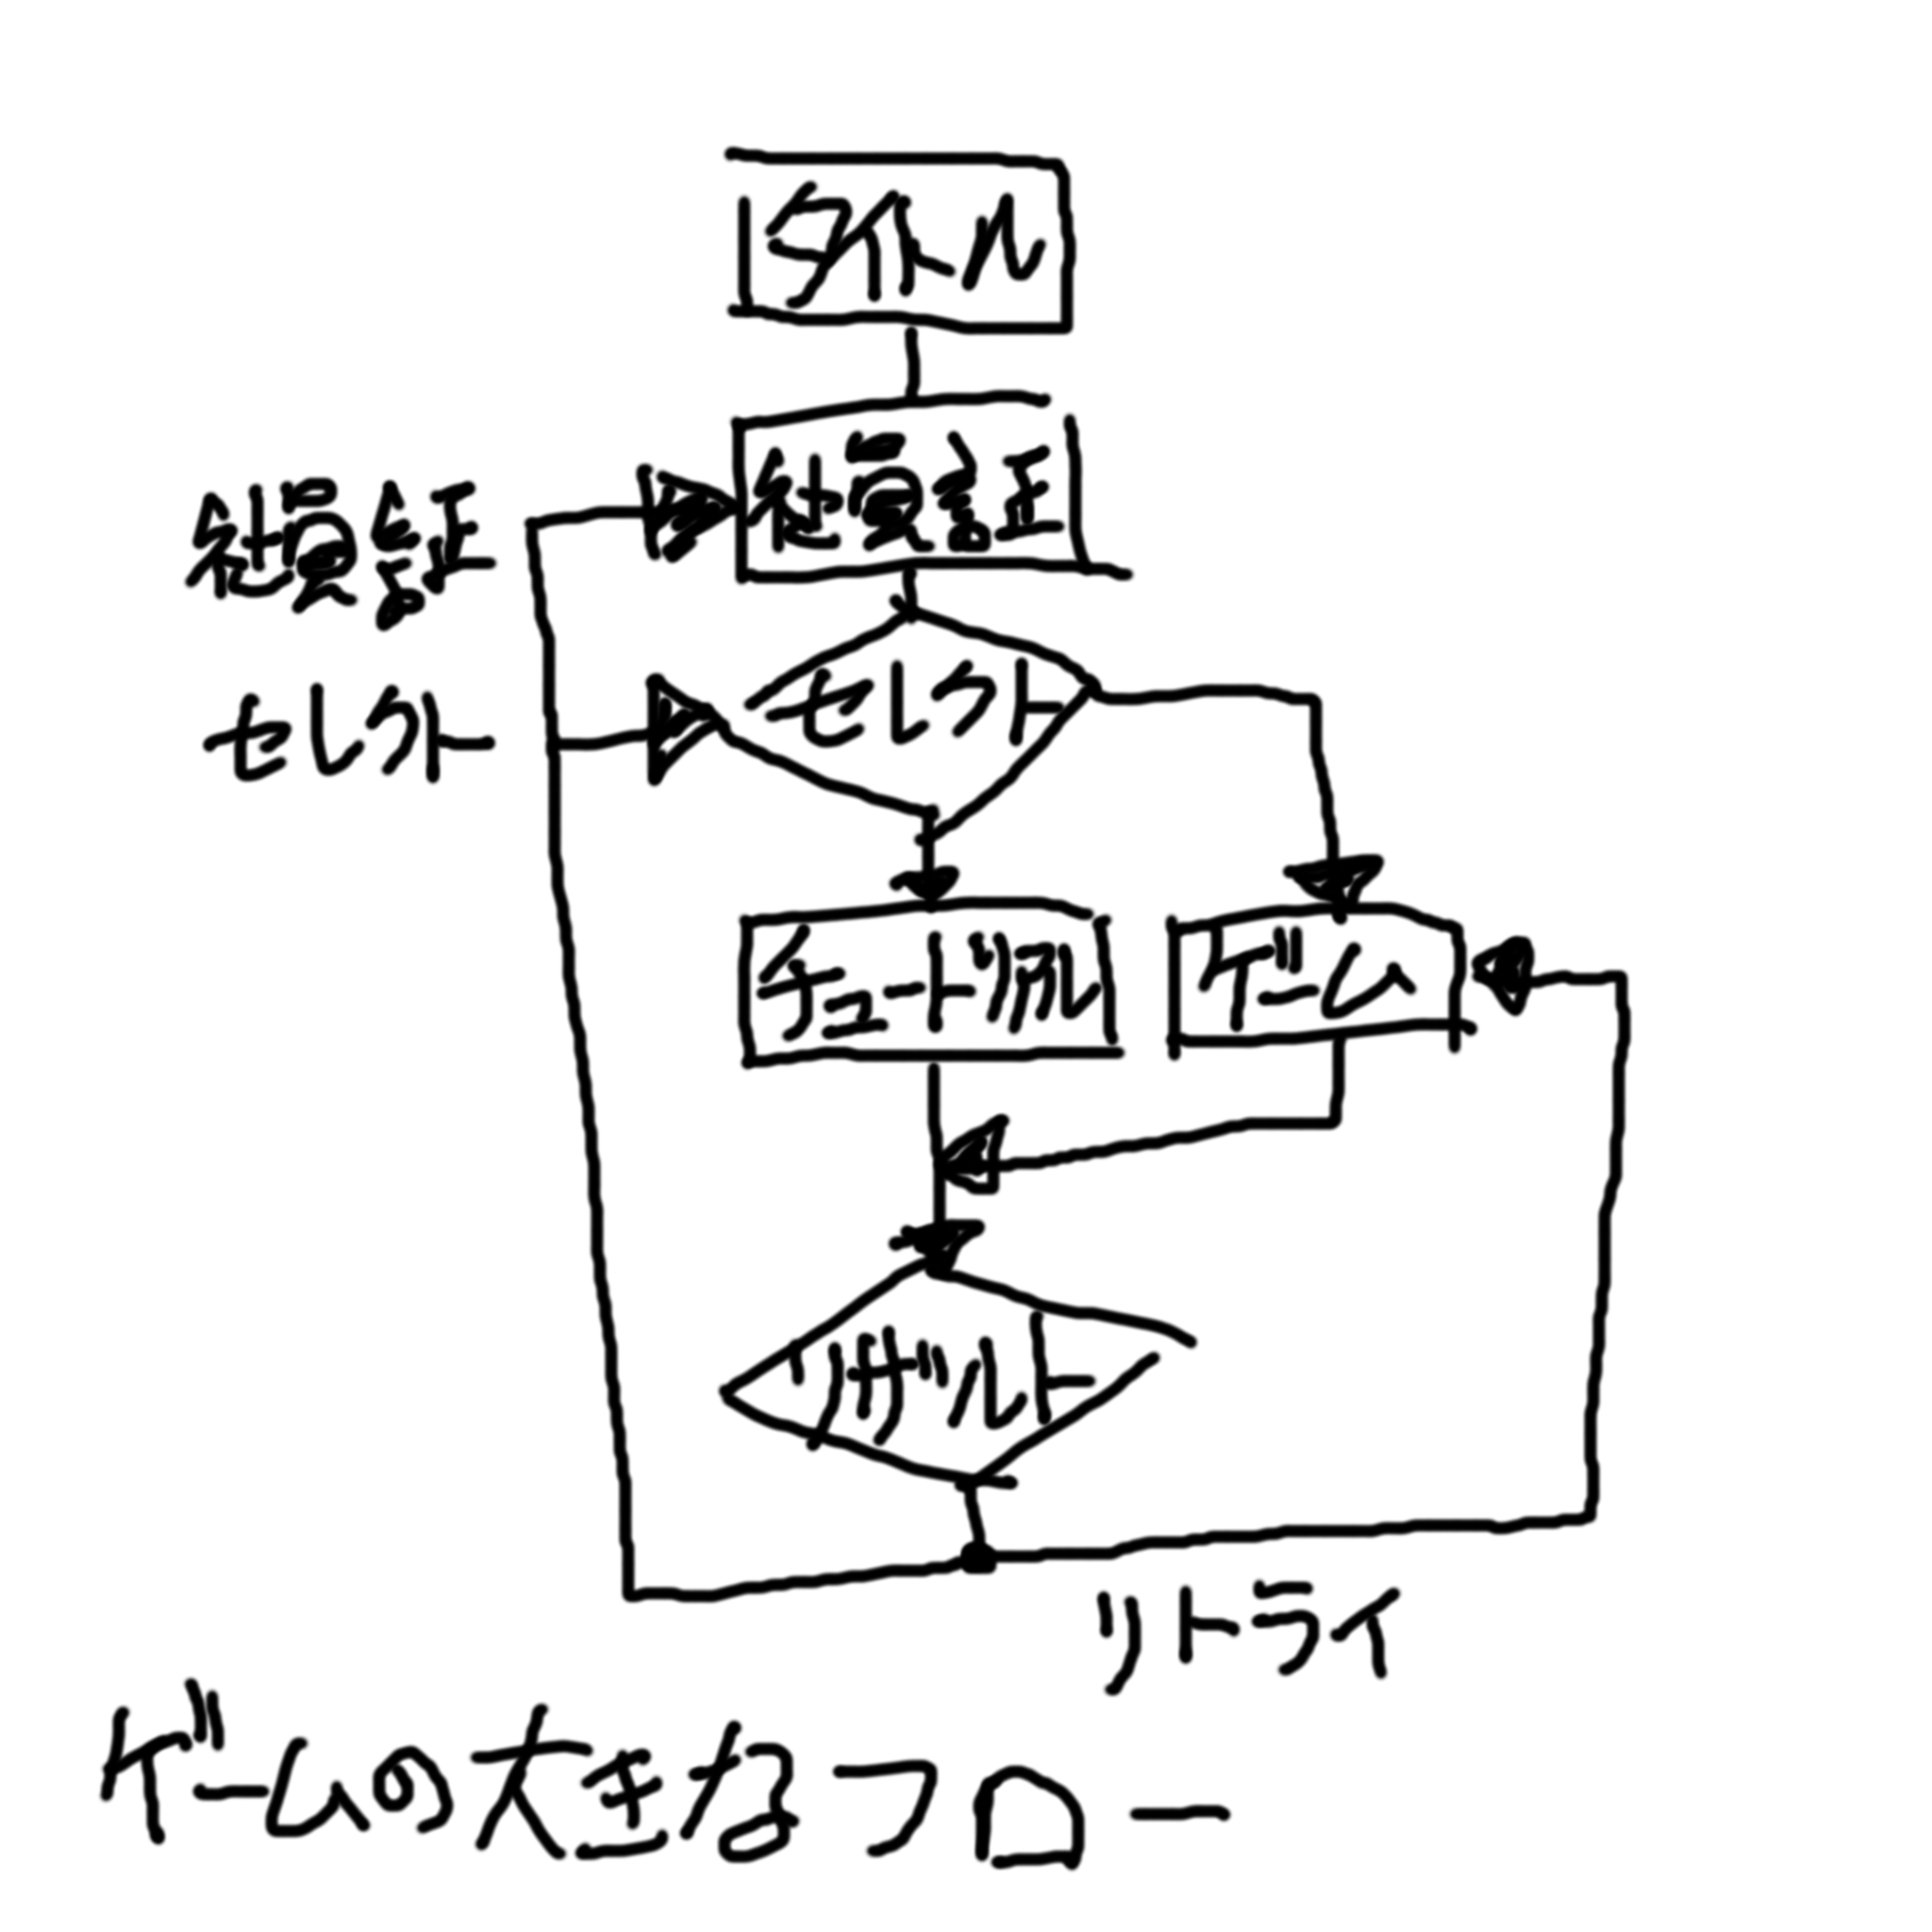 タイトル
顔認証
顔認証
セレクト
セレクト
チュートリアル
ゲーム
リザルト
リトライ
ゲームの大きなフロー